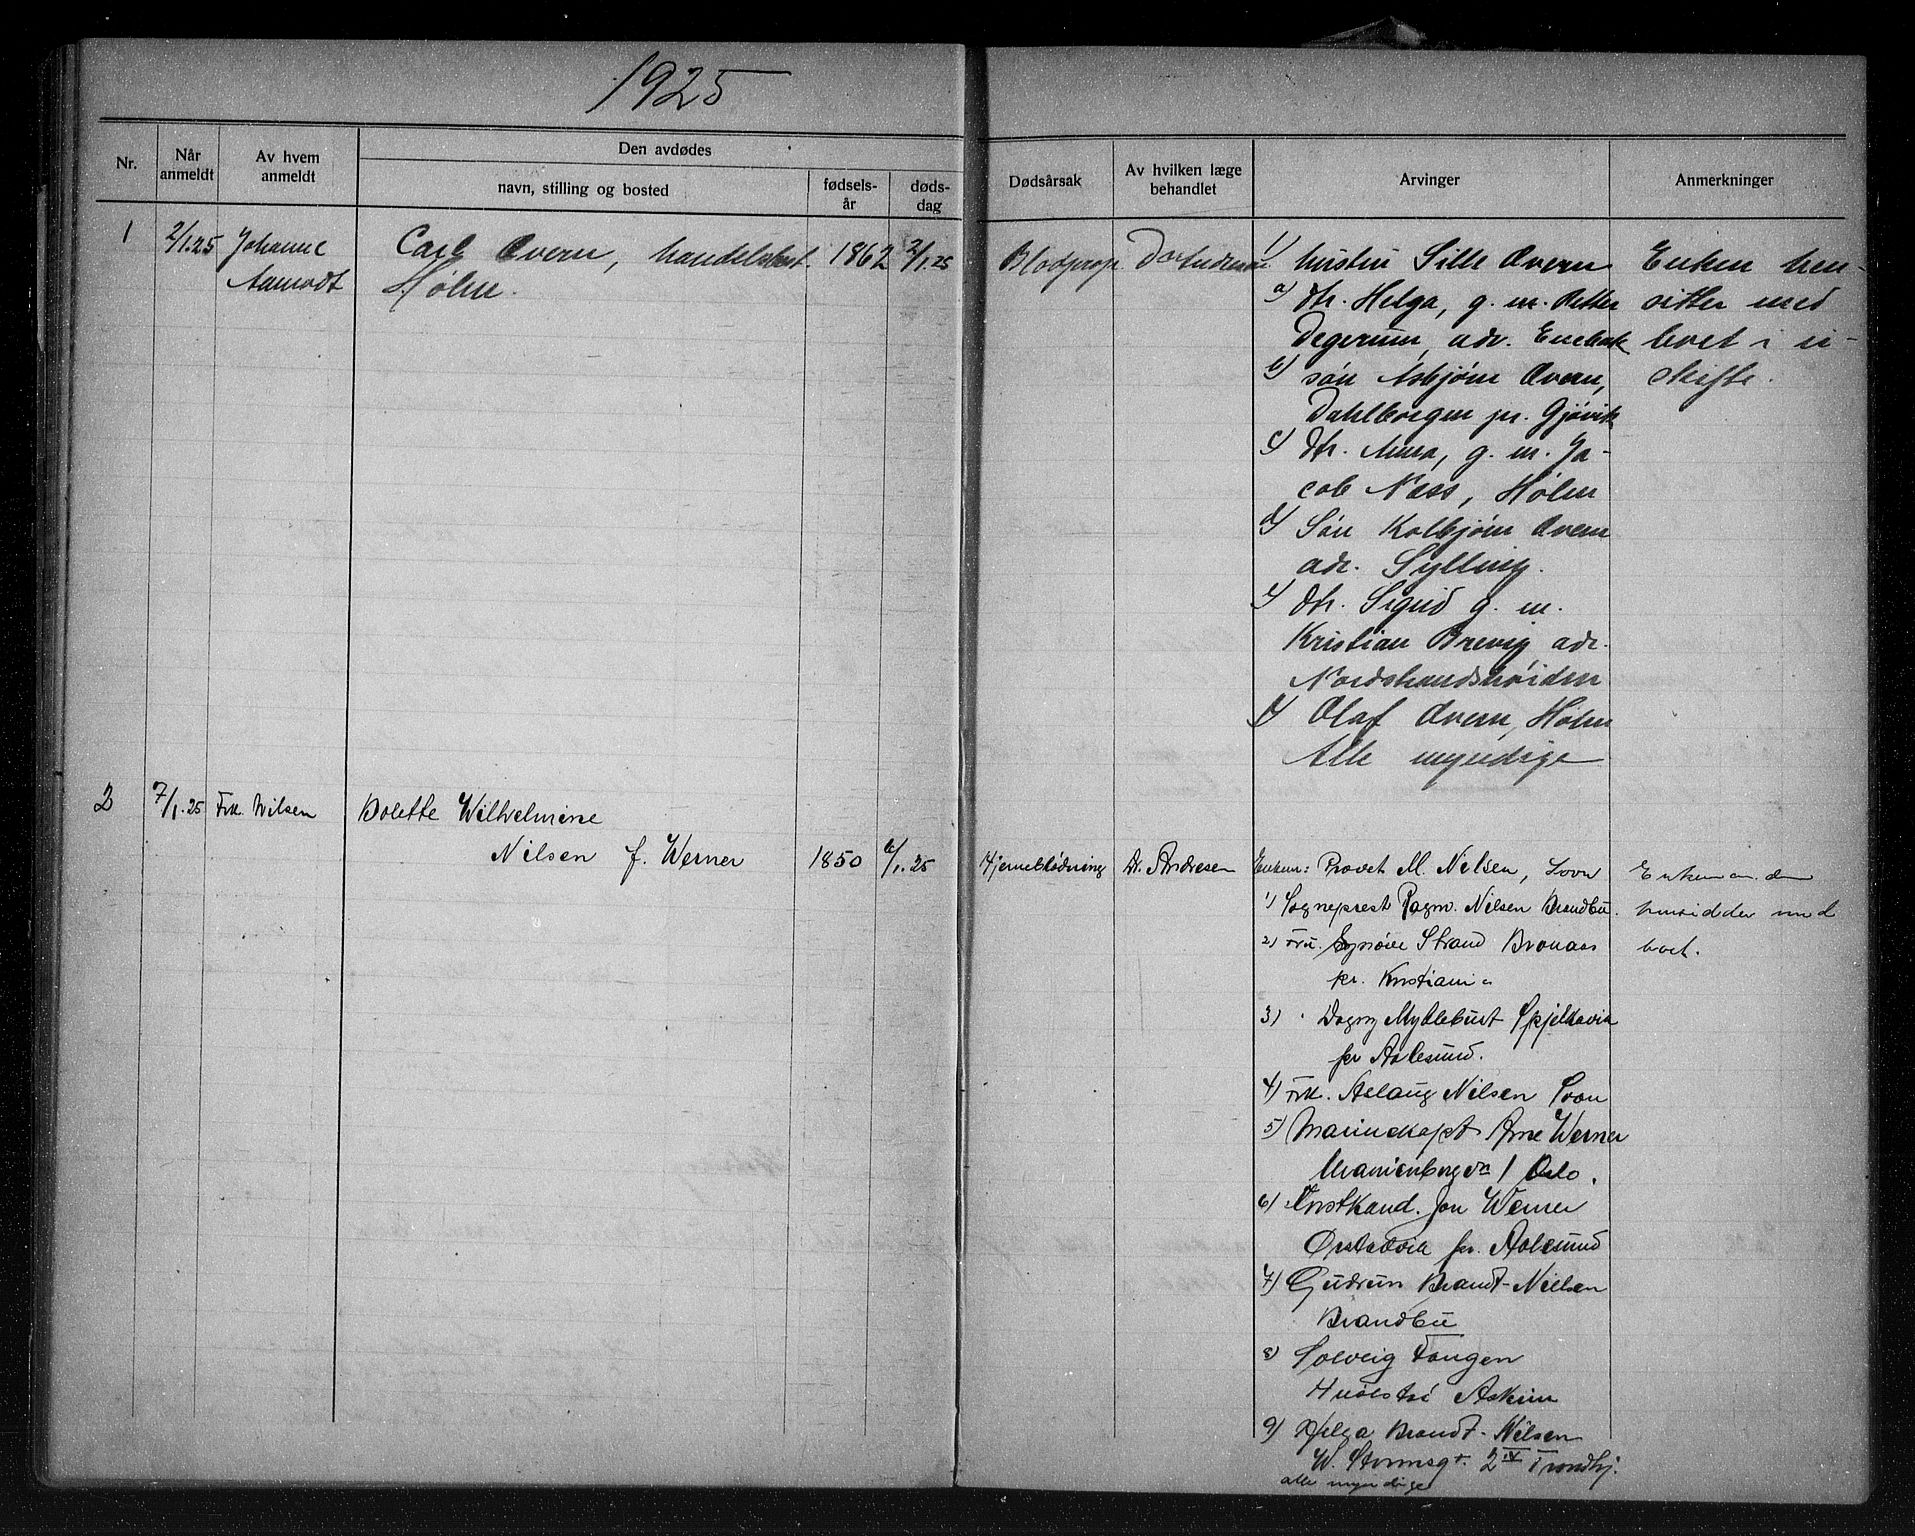 1925
Nr.
Når anmeldt
Av hvem anmeldt
Den avdødes
navn, stilling og bosted
fødsels-år
døds-dag
Dødsårsak
Av hvilken læge behandlet
Arvinger
Anmerkninger
1
2/1.25
Johanne
Aamodt
Carl Overn,
Hølen.
1862
2/1.25
Blodprop
Dr
1) hustru Sille Overn
a) dtr. Helga, g. m. Petter
Degerum, adr. Enebak
b) søn Asbjørn Overn,
Dahlborgen pr. Gjøvik
c) dtr. Anna, g. m. Ja-
cob Næss, Hølen
d) Søn Kolbjørn Overn
adr. Sylling.
e) dtr. Sigrid g. m.
Kristian Brevig adr.
Nordstrandshøiden
f) Olaf Overn, Hølen
Alle myndige
Enken hen-
sitter med
boet i u-
skifte.
2
7/1.25
Frk. Nilsen
Bolette Wilhelmine
Nilsen f. Werner
1850
6/1.25
Hjerneblødning
Dr. Andresen
Enkem: Provst M. Nilsen, Soon
1) Sogneprest Ragnv. Nilsen Brandbu.
2) Fru. Synøve Strand
pr. Kristiania
3) " Dagny Myklebust Spjelkavik
pr Aalesund.
4) Frk. Aslaug Nilsen Soon
5) Marinekapt Arne Werner
1 Oslo.
6) Forstkand. Jon Werner
Ørstadvik pr. Aalesund
7) Gudrun Brandt-Nielsen
Brandbu
8) Solveig Fangen
Askim
9) Helga Brandt-Nilsen
W. Stormsgt. 2 IV Trondhj.
alle myndige
Enkemanden
hensidder med
boet.